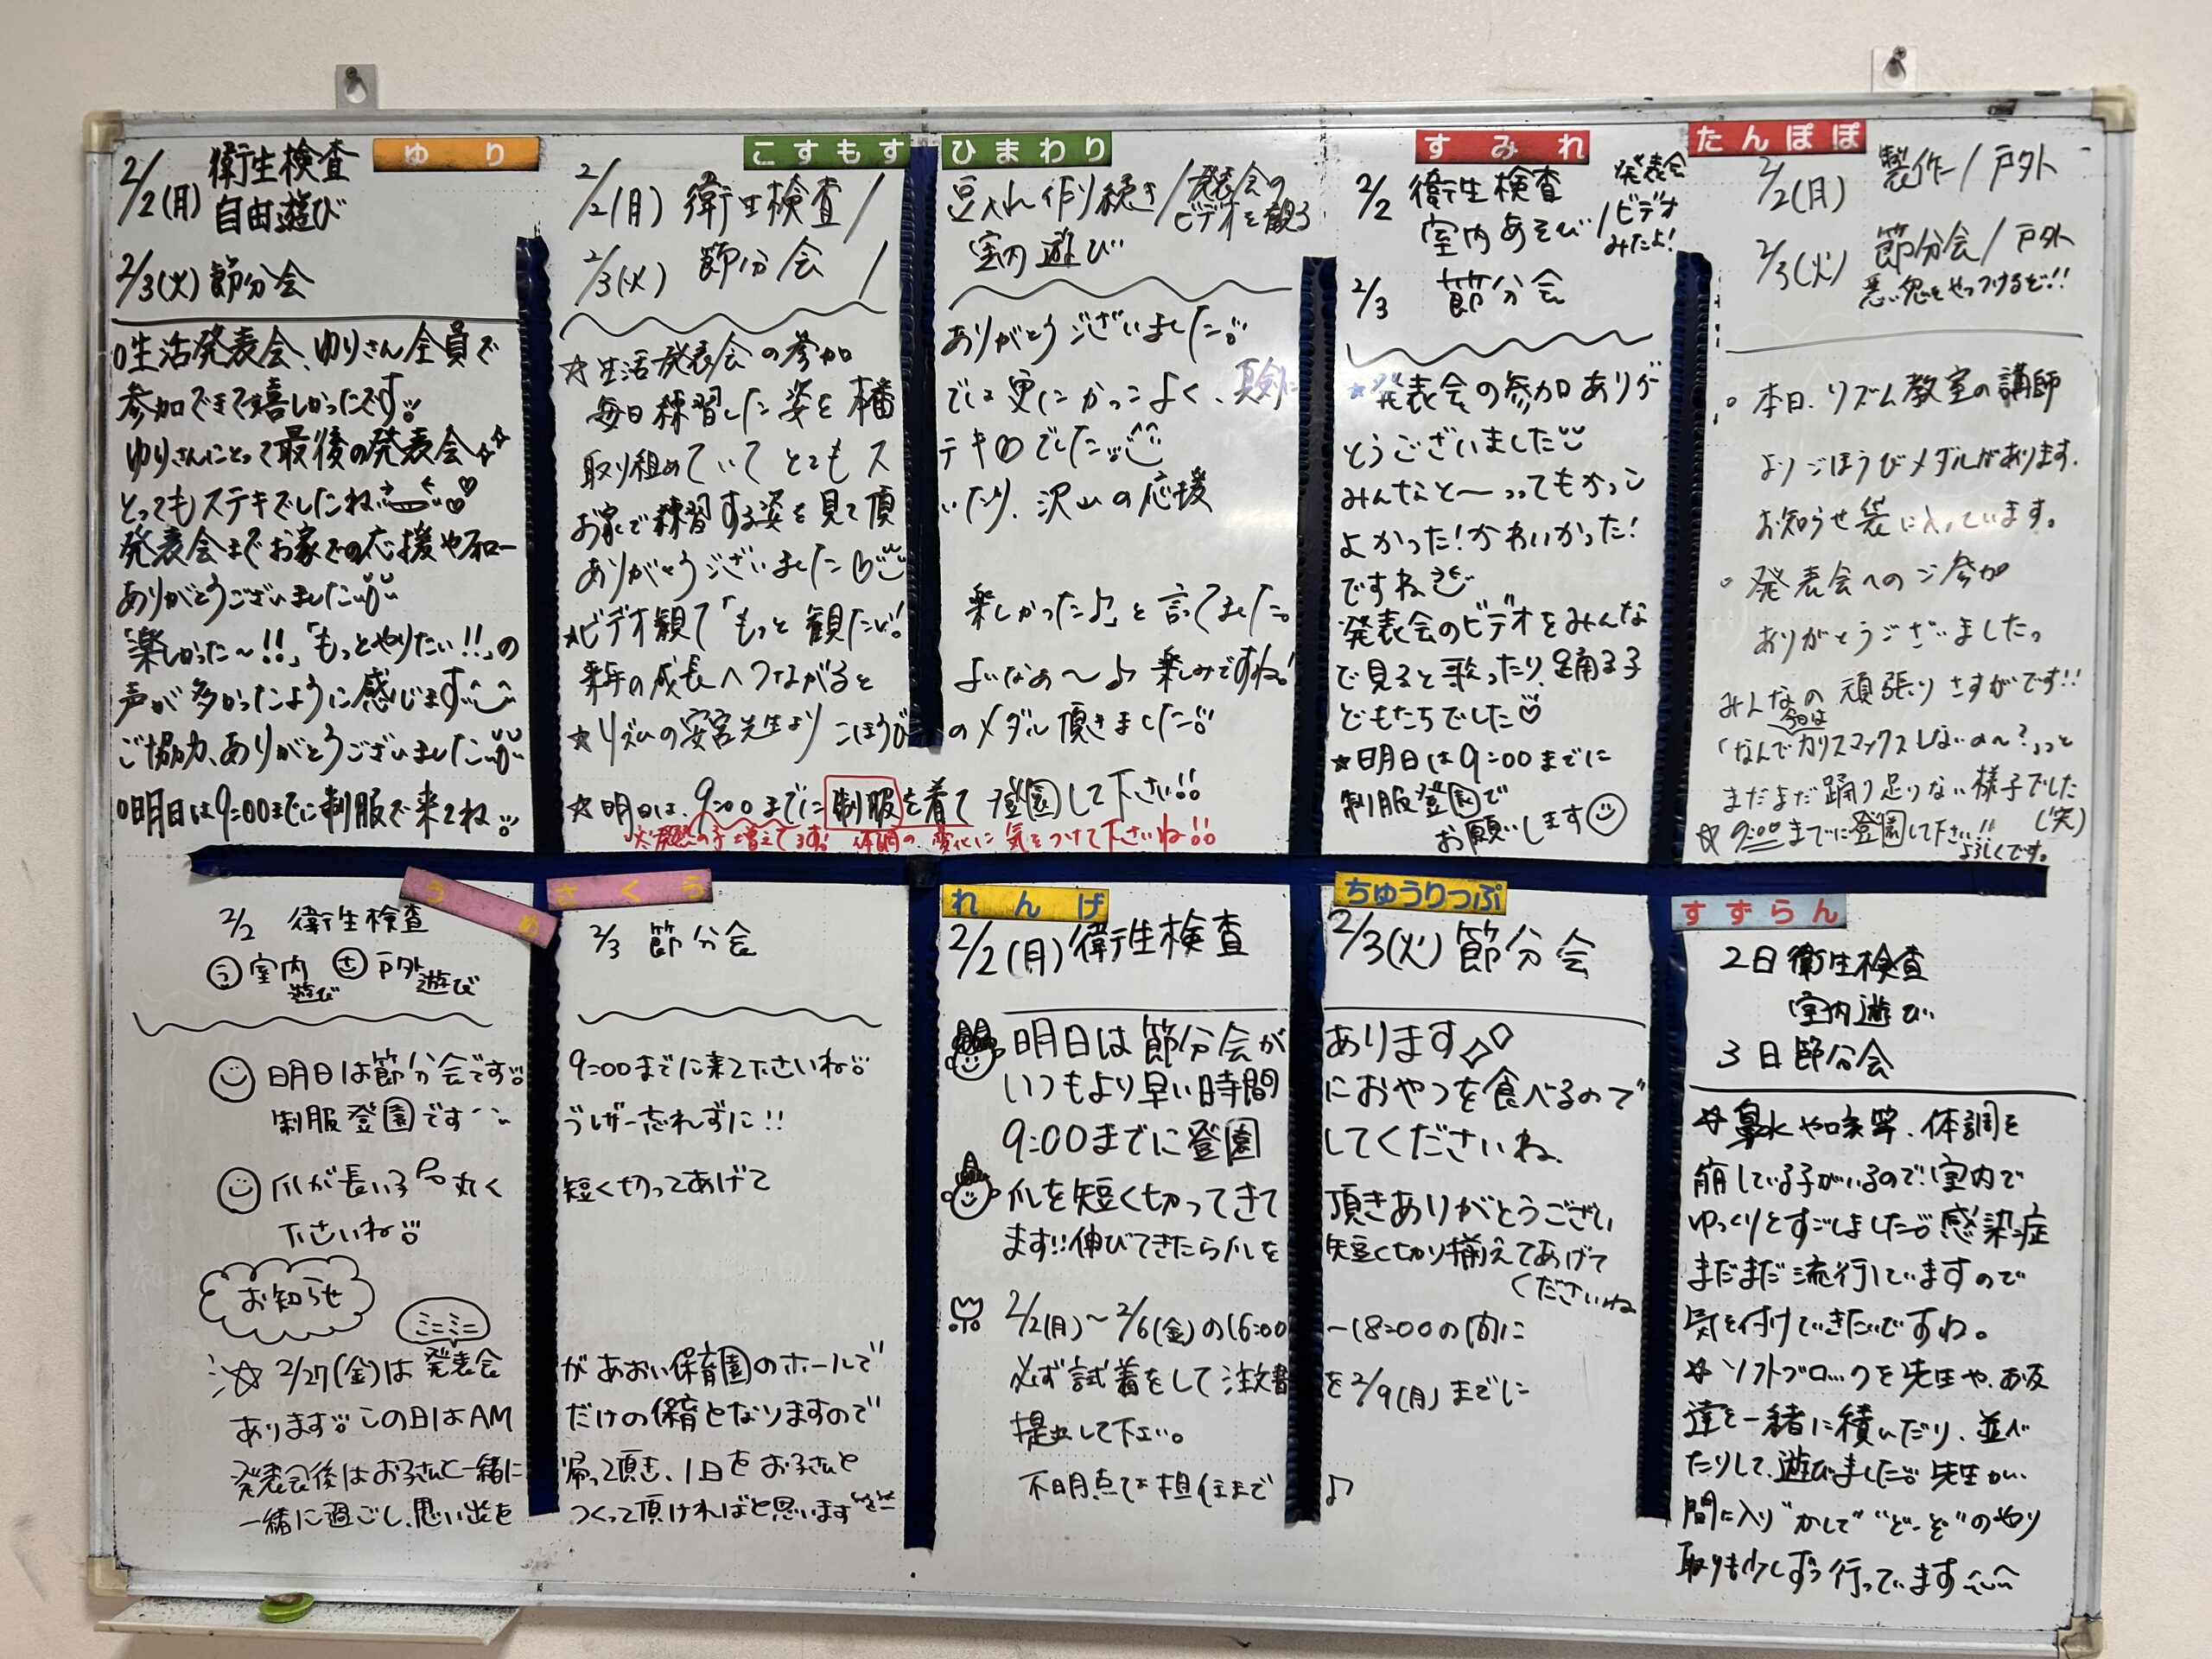 ゆり
2/2(月) 衛生検査
自由遊び
2/3(火) 節分会
○生活発表会、ゆりさん全員で
参加できて嬉しかったです。
ゆりさんにとって最後の発表会
とってもステキでしたね
発表会までお家での応援やフォロー
ありがとうございました
「楽しかった〜!!」「もっとやりたい!!」の
声が多かったように感じます
ご協力、ありがとうございました
○明日は9:00までに制服で来てね
こすもす ひまわり
2/2(月) 衛生検査/豆入れ作り続き/発表会の
ビデオを観る
2/3(火) 節分会/室内遊び
☆生活発表会の参加ありがとうございました
毎日練習した姿を本番では更にかっこよく、真剣に
取り組めていてとてもステキ でした
お家で練習する姿を見て頂いたり、沢山の応援
ありがとうございました
★ビデオ観て「もっと観たい!楽しかった♪」と言ってました。
来年の成長へつながるとよいなぁ〜♪楽しみですね!
☆リズムの安宮先生よりごほうびのメダル頂きました
☆明日は、9:00までに制服を着て登園して下さい!!
発熱の子増えてます!体調の変化に気をつけて下さいね
すみれ
2/2 衛生検査
室内あそび/発表会
ビデオ
みたよ!
2/3 節分会
★発表会の参加ありが
とうございました
みんなと〜ってもかっこ
よかった!かわいかった!
ですね
発表会のビデオをみんな
で見ると歌ったり、踊る子
どもたちでした♡
★明日は9:00までに
制服登園で
お願いします
たんぽぽ
2/2(月) 製作/戸外
2/3(火) 節分会/戸外
悪い鬼をやっつけるぞ!!
○本日、リズム教室の講師
よりごほうびメダルがあります。
お知らせ袋に入っています。
○発表会へのご参加
ありがとうございました。
みんなの頑張りさすがです!!
今日は
「なんでカリスマックスしないの〜?」っと
まだまだ踊り足りない様子でした
(笑)
☆9:00までに登園して下さい!!
よろしくです。
うめ さくら
2/2 衛生検査 2/3 節分会
う室内遊び さ戸外遊び
明日は節分会です 9:00までに来て下さいね
制服登園です 忘れずに!!
爪が長い子 丸く短く切ってあげて
下さいね
お知らせ
ミニミニ
☆2/27(金)は発表会があおい保育園のホールで
あります この日はAMだけの保育となりますので
発表会後はお子さんと一緒に帰って頂き、1日をお子さんと
一緒に過ごし、思い出をつくって頂ければと思います
れんげ ちゅうりっぷ
2/2(月) 衛生検査 2/3(火) 節分会
明日は節分会があります
いつもより早い時間におやつを食べるので
9:00までに登園してくださいね。
爪を短く切ってきて頂きありがとうござい
ます!!伸びてきたら爪を短く切り揃えてあげて
くださいね
2/2(月)〜2/6(金)の16:00〜18:00の間に
必ず試着をして注文書を2/9(月)までに
提出して下さい。
不明点は担任まで♪
すずらん
2日 衛生検査
室内遊び
3日 節分会
☆鼻水や咳等、体調を
崩している子がいるので室内で
ゆっくりとすごしました 感染症
まだまだ流行していますので
気を付けていきたいですね。
☆ソフトブロックを先生や、お友
達と一緒に積んだり、並べ
たりして、遊びました 先生が
間に入り"かして""どーぞ"のやり
取りも少しずつ行っています